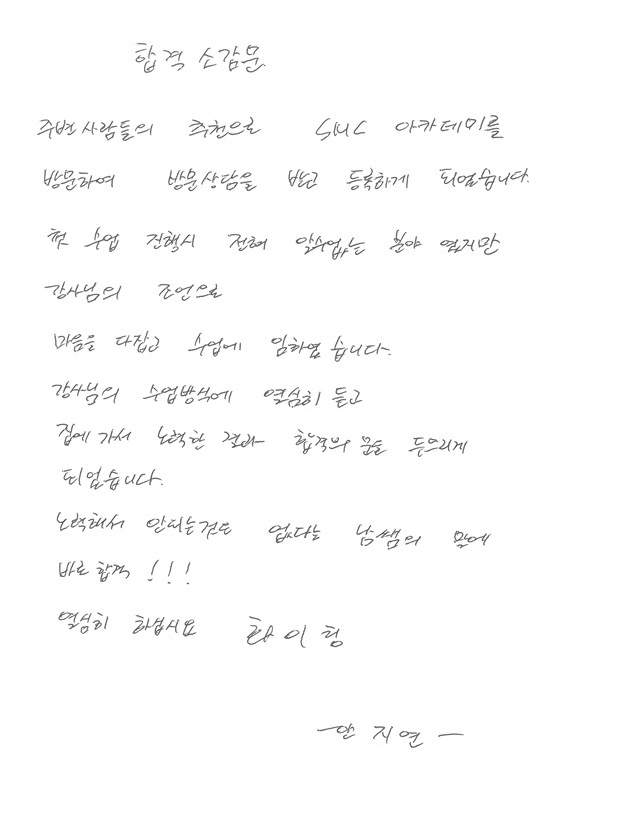 합격 소감문
주변 사람들의 추천으로 SMC 아카데미를
방문하여 방문상담을 받고 등록하게 되었습니다.
첫 수업 진행시 전혀 알수없는 분야 였지만
강사님의 조언으로
마음을 다잡고 수업에 임하였습니다.
강사님의 수업방식에 열심히 듣고
집에 가서 노력한 결과 합격의 문을 두드리게
되었습니다.
노력해서 안되는것은 없다는 남쌤의 말에
바로 합격 !!!
열심히 하십시요 화이팅
- 안지연 -